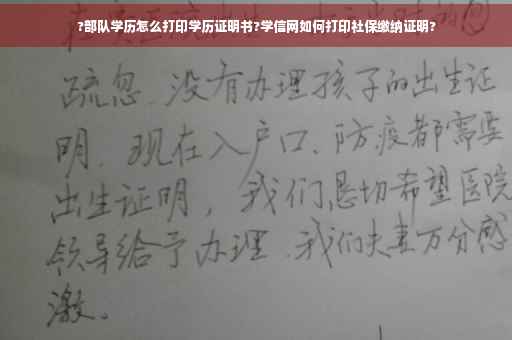 ?部队学历怎么打印学历证明书?学信网如何打印社保缴纳证明?
疏忽、没有办理孩子的出生证
明、现在入户口、防疫都需要
出生证明，我们恳切希望医院
领导给予办理、我们夫妻万分感
激。